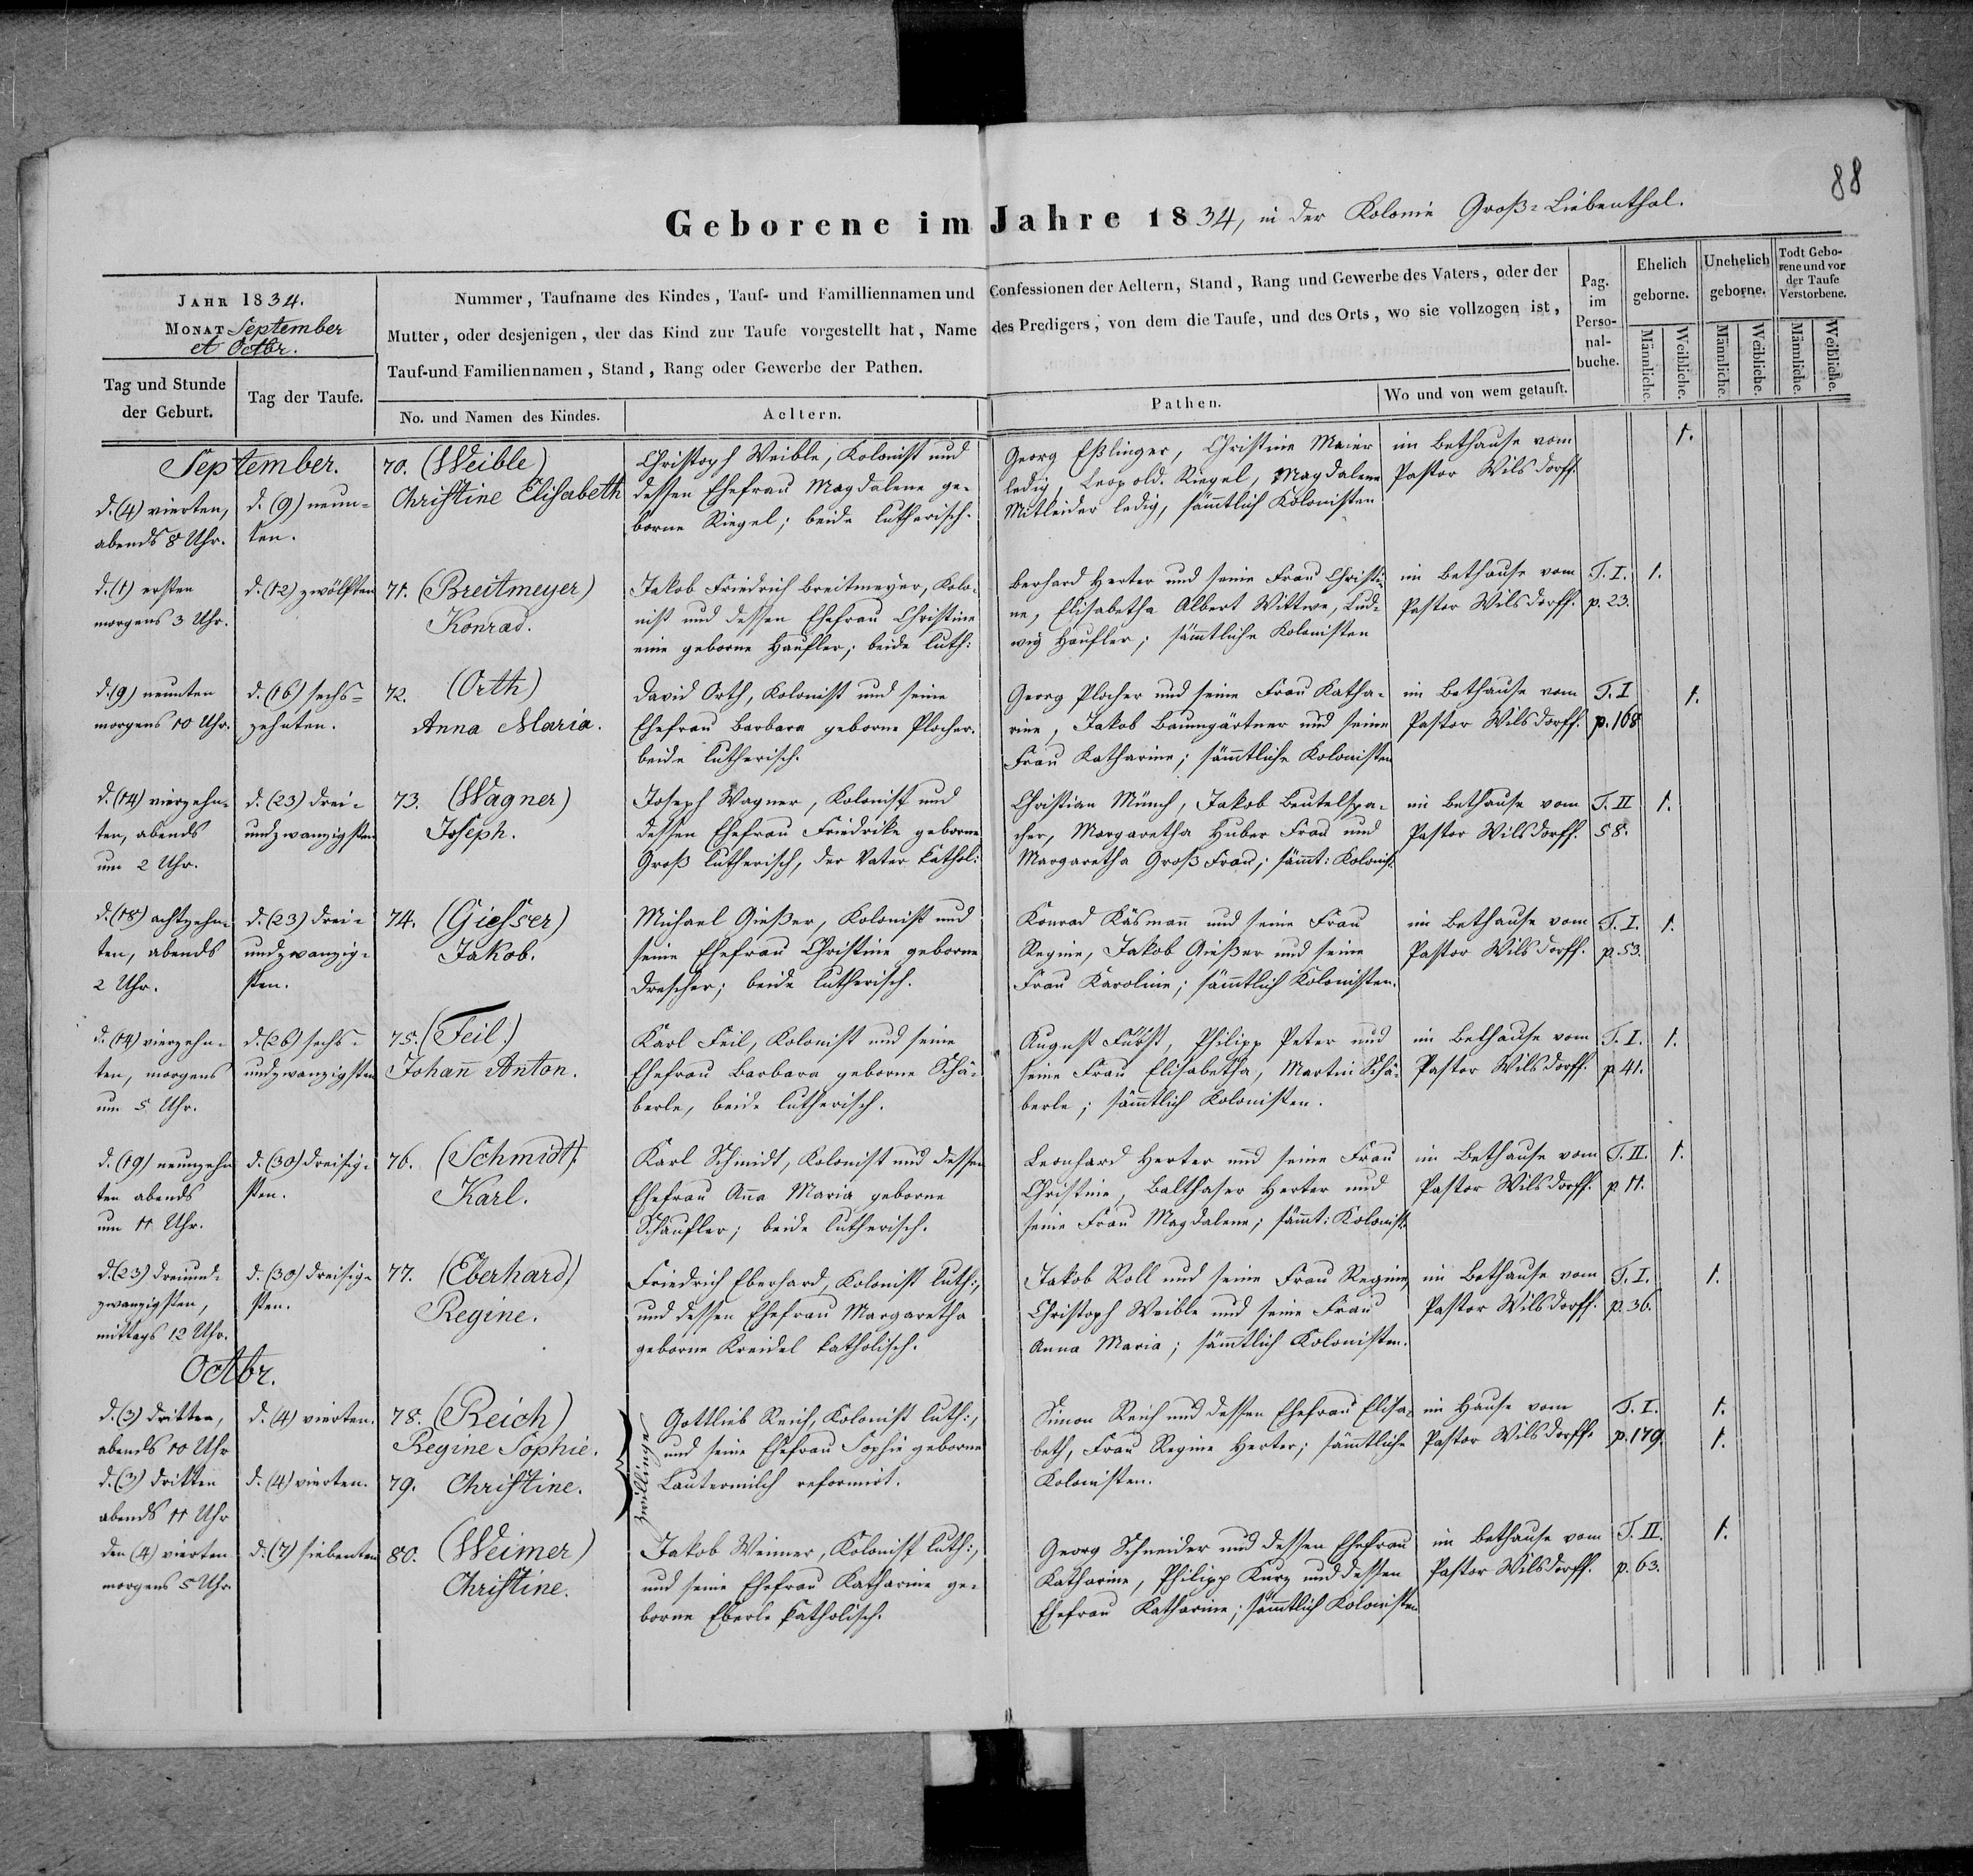 88
Geborene im Jahre 1834, in der Kolonie Groß-Liebenthal.
JAHR 1834.
MONAT September
et Octbr.
Tag und Stunde
der Geburt.
Tag der Taufe.
Nummer, Taufname des Kindes, Tauf- und Familliennamen und Confessionen der Aeltern, Stand, Rang und Gewerbe des Vaters, oder der
Mutter, oder desjenigen, der das Kind zur Taufe vorgestellt hat, Name des Predigers, von dem die Taufe, und des Orts, wo sie vollzogen ist,
Tauf-und Familiennamen, Stand, Rang oder Gewerbe der Pathen.
No. und Namen des Kindes.
Aeltern.
Pathen.
Wo und von wem getauft.
Pag.
im
Perso-
nal-
buche.
Ehelich
geborne.
Unehelich
geborne.
Todt Gebo-
rene und vor
der Taufe
Verstorbene.
Männliche.
Weibliche.
Männliche.
Weibliche.
Männliche.
Weibliche.
September.
d. (4) vierten,
abends 8 Uhr.
d. (9) neun-
ten.
70. (Weible)
Christine Elisabeth
Christoph Weible, Kolonist und
dessen Ehefrau Magdalene ge-
borne Riegel; beide lutherisch.
Georg Eßlinger, Christine Maier
ledig, Leopold. Riegel, Magdalene
Mitleider ledig, sämtlich Kolonisten
im Bethause vom
Pastor Wilsdorff.
1.
d. (1) ersten
morgens 3 Uhr.
d. (12) zwölften
71. (Breitmeyer)
Konrad.
Jakob Friedrich Breitmeyer, Kolo-
nist und dessen Ehefrau Christine
eine geborne Häußler; beide luth:
Berhard Herter und seine Frau Christi-
ne, Elisabetha Albert Wittwe, Lud-
wig Haußler; sämtliche Kolonisten
im Bethause vom
Pastor Wilsdorff.
T. I.
p. 23.
1.
d. (9) neunten
morgens 10 Uhr.
d. (16) sechs-
zehnten.
72. (Orth)
Anna Maria.
David Orth, Kolonist und seine
Ehefrau Barbara geborne Plocher.
beide lutherisch.
Georg Plocher und seine Frau Katha-
rine, Jakob Baumgärtner und seine
Frau Katharine; sämtliche Kolonisten
im Bethause vom
Pastor Wilsdorff.
T. I
p. 168
1.
d. (14) vierzehn-
ten, abends
um 2 Uhr.
d. (23) drei-
undzwanzigsten
73. (Wagner)
Joseph.
Joseph Wagner, Kolonist und
dessen Ehefrau Friedrike geborne
Groß lutherisch, der Vater kathol:
Christian Münch, Jakob Beutelspa-
cher, Margaretha Huber Frau und
Margaretha Groß Frau; sämt: Kolonist.
im Bethause vom
Pastor Wilsdorff.
T. II
58.
1.
d. (18) achtzehn-
ten, abends
2 Uhr.
d. (23) drei-
undzwanzig-
sten.
74. (Giesser)
Jakob.
Michael Gießer, Kolonist und
seine Ehefrau Christine geborne
Drescher; beide lutherisch.
Konrad Käsmañ und seine Frau
Regine, Jakob Gießer und seine
Frau Karoline; sämtlich Kolonisten.
im Bethause vom
Pastor Wilsdorff.
T. I.
p. 53.
1.
d. (14) vierzehn-
ten, morgens
um 5 Uhr.
d. (26) sechs-
undzwanzigsten
75. (Feil)
Johañ Anton.
Karl Feil, Kolonist und seine
Ehefrau Barbara geborne Schä-
berle, beide lutherisch.
August Fürst, Philipp Peter und
seine Frau Elisabetha, Martin Schä-
berle; sämtlich Kolonisten.
im Bethause vom
Pastor Wilsdorff.
T. I.
p 41.
1.
d. (19) neunzehn
ten abends
um 11 Uhr.
d. (30) dreisig-
sten.
76. (Schmidt)
Karl.
Karl Schmidt, Kolonist und dessen
Ehefrau Aña Maria geborne
Schäufler; beide lutherisch.
Leonhard Herter und seine Frau
Christine, Balthaser Herter und
seine Frau Magdalene; sämt: Kolonist.
im Bethause vom
Pastor Wilsdorff.
T. II.
p. 11.
1.
d. (23) dreiund-
zwanzigsten,
mittags 12 Uhr.
d. (30) dreisig-
sten.
77. (Eberhard)
Regine.
Friedrich Eberhard, Kolonist luth:,
und dessen Ehefrau Margaretha
geborne Kreidel katholisch.
Jakob Roll und seine Frau Regine,
Christoph Weible und seine Frau
Anna Maria; sämtlich Kolonisten.
im Bethause vom
Pastor Wilsdorff.
T. I.
p. 36.
1.
Octbr.
d. (3) dritten,
abends 10 Uhr
d. (4) vierten.
78. (Reich)
Regine Sophie.
d. (3) dritten
abends 11 Uhr
d. (4) vierten.
79. Christine.
Zwillinge
Gottlieb Reich, Kolonist luth:,
und seine Ehefrau Sophie geborne
Lautermilch reformirt.
Simon Reich und dessen Ehefrau Elisa-
beth, Frau Regine Herter; sämtliche
Kolonisten.
im Hause vom
Pastor Wilsdorff.
T. I.
p. 179.
1.
1.
den (4) vierten
morgens 5 Uhr.
d. (7) siebenten
80. (Weimer)
Christine.
Jakob Weimer, Kolonist luth:,
und seine Ehefrau Katharine ge-
borne Eberle katholisch.
Georg Schneider und dessen Ehefrau
Katharine, Philipp Kurz und dessen
Ehefrau Katharine; sämtlich Kolonisten
im Bethause vom
Pastor Wilsdorff.
T. II.
p. 63.
1.